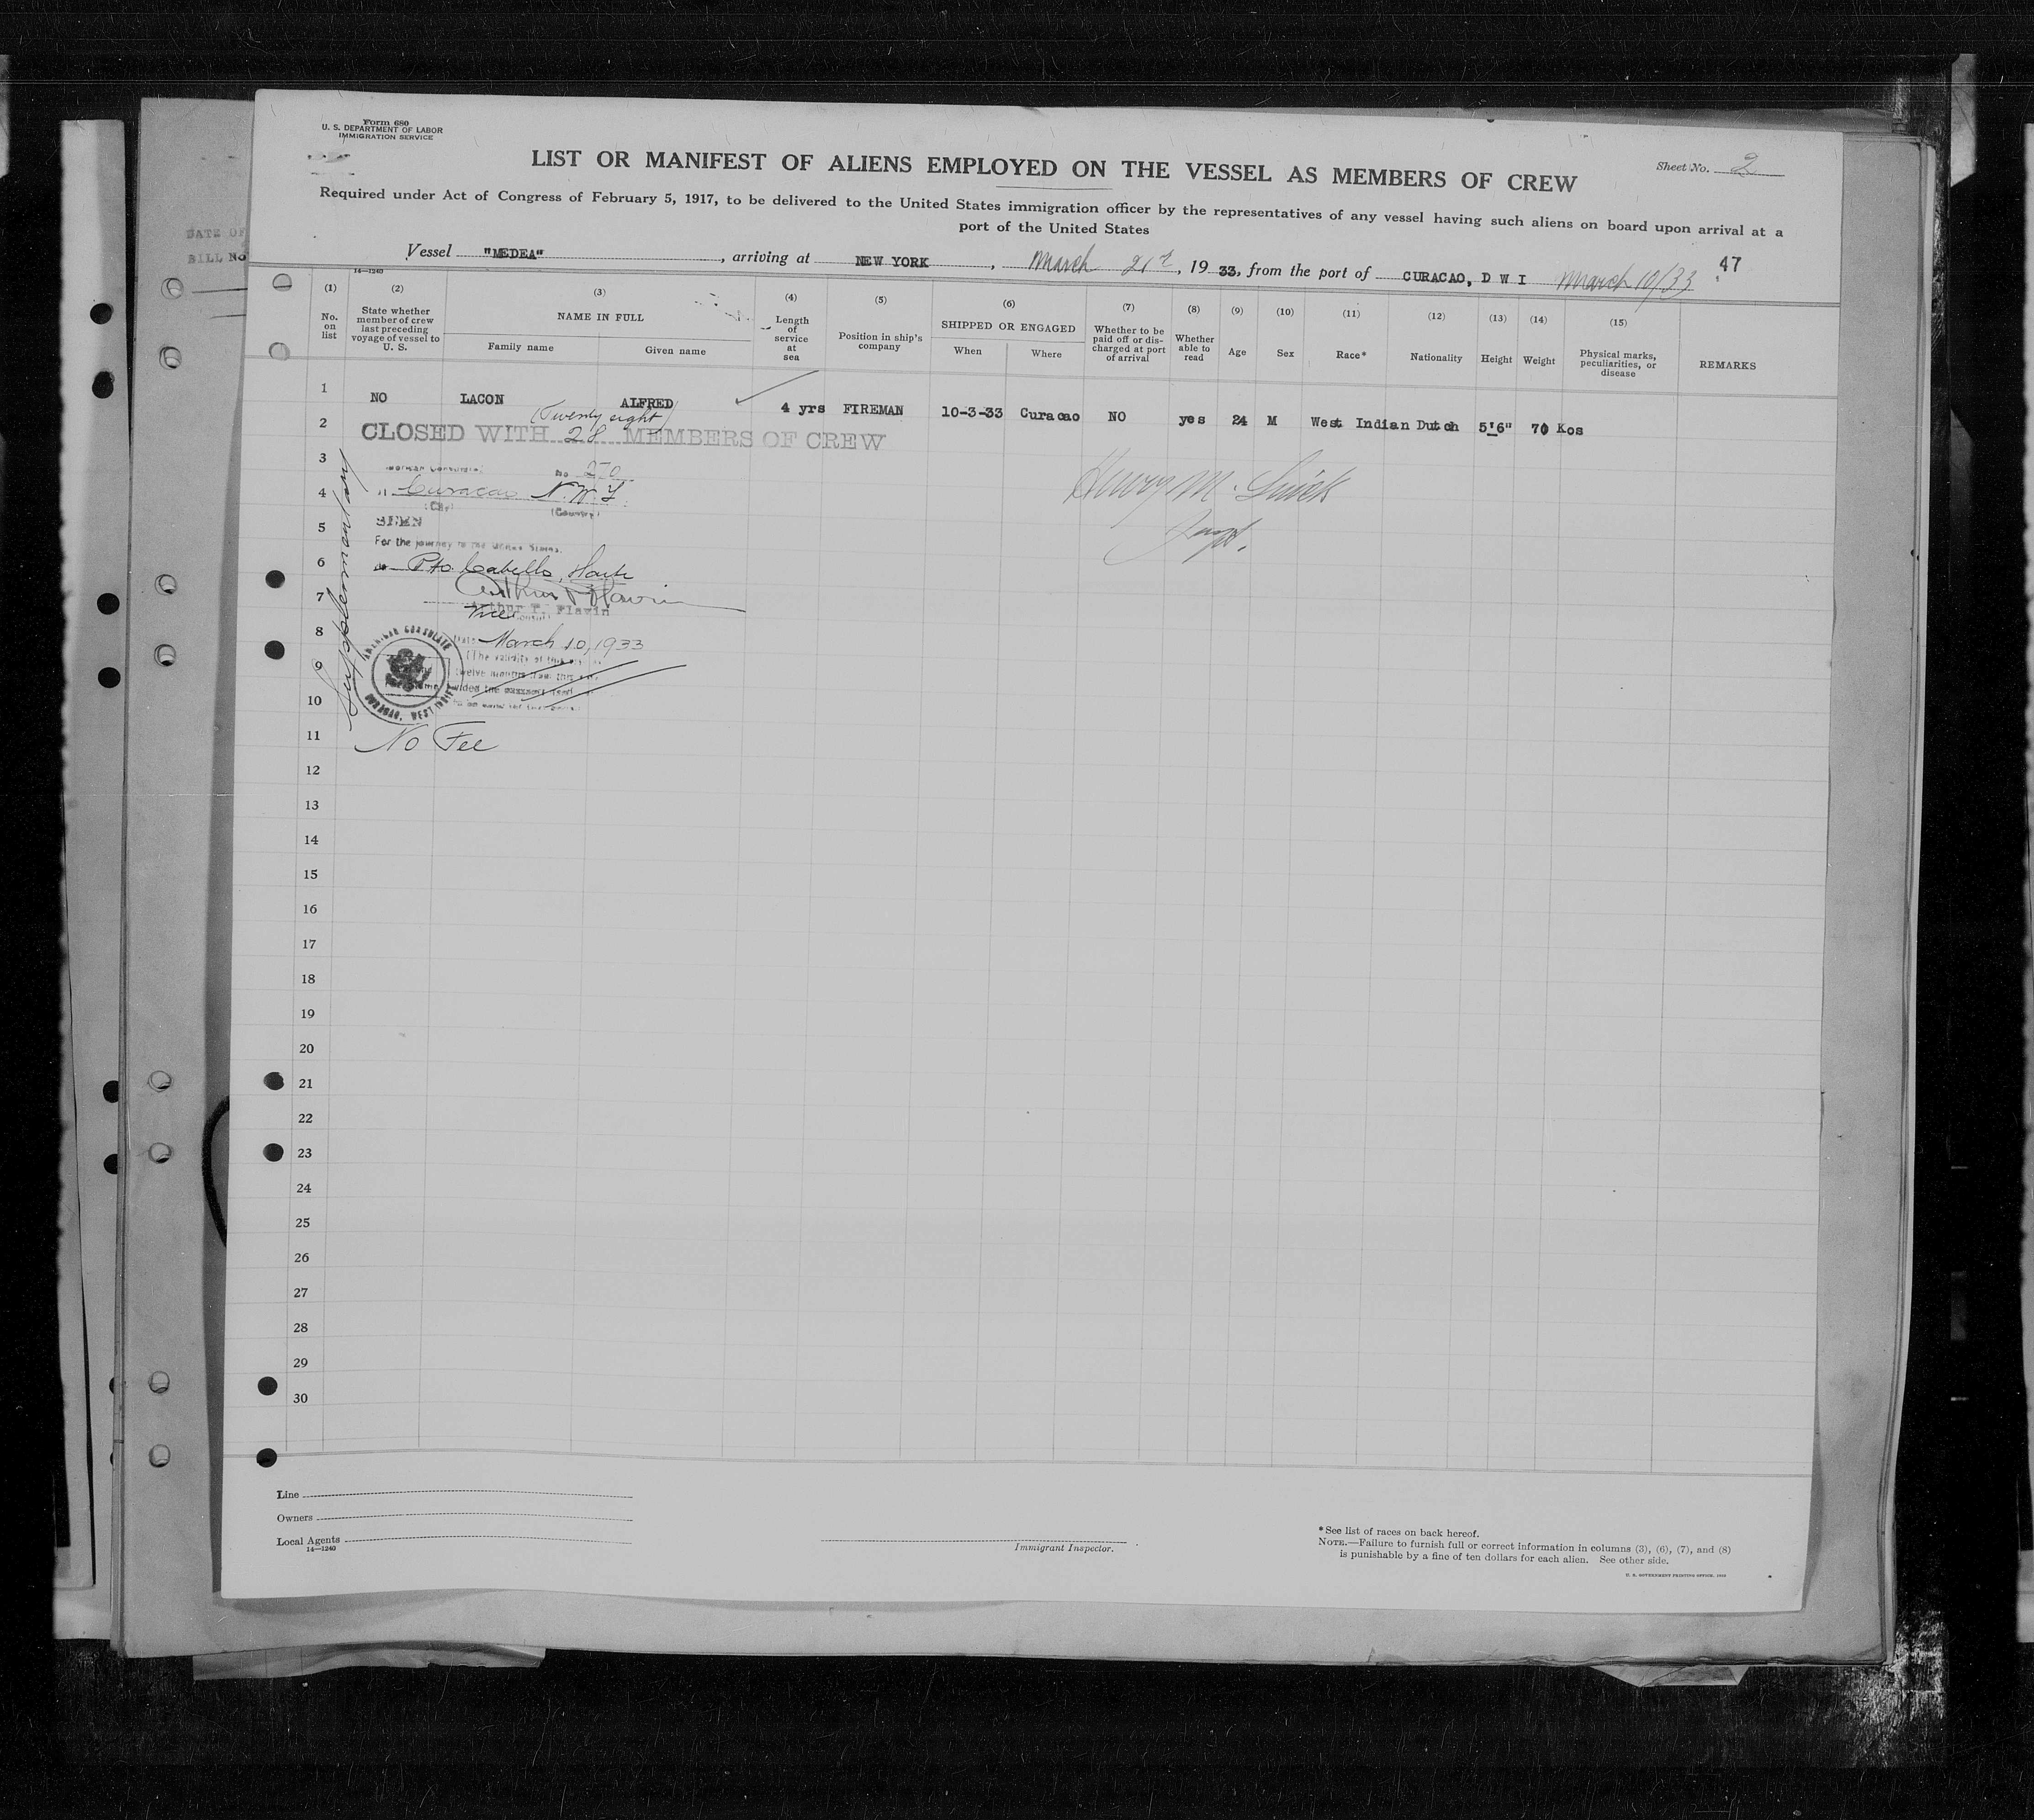 Form 680
U. S. DEPARTMENT OF LABOR
IMMIGRATION SERVICE
Sheet No. 2
LIST OR MANIFEST OF ALIENS EMPLOYED ON THE VESSEL AS MEMBERS OF CREW
Required under Act of Congress of February 5, 1917, to be delivered to the United States immigration officer by the representatives of any vessel having such aliens on board upon arrival at a
port of the United States
DATE OF
BILL No
Vessel "MEDEA", arriving at NEW YORK, March 21st, 1933, from the port of CURACAO, D W I March 10/33
47
14—1240
(1) (2) (3) (4) (5) (6) (7) (8) (9) (10) (11) (12) (13) (14) (15)
No. on list
State whether member of crew last preceding voyage of vessel to U. S.
NAME IN FULL
Family name Given name
Length of service at sea
Position in ship's company
SHIPPED OR ENGAGED
When Where
Whether to be paid off or discharged at port of arrival
Whether able to read
Age
Sex
Race*
Nationality
Height
Weight
Physical marks, peculiarities, or disease
REMARKS
1 NO LACON ALFRED 4 yrs FIREMAN 10-3-33 Curacao NO yes 24 M West Indian Dutch 5'6" 70 Kos
(Twenty eight)
2 CLOSED WITH 28 MEMBERS OF CREW
3 No 270
4 Curacao N.W.I.
(City) (Country)
Henry M.
5 SEEN
For the journey to the United States.
6 Pto. Cabello, Haiti
7 Arthur T. Flavin
Arthur T. Flavin
Vice Consul
8 March 10, 1933
(The validity of this
9 twelve months from this
10
AMERICAN CONSULATE
CURACAO, WEST INDIES
Supplementary
11 No Fee
12
13
14
15
16
17
18
19
20
21
22
23
24
25
26
27
28
29
30
Line
Owners
Local Agents
14—1240
Immigrant Inspector.
*See list of races on back hereof.
NOTE.—Failure to furnish full or correct information in columns (3), (6), (7), and (8)
is punishable by a fine of ten dollars for each alien. See other side.
U. S. GOVERNMENT PRINTING OFFICE